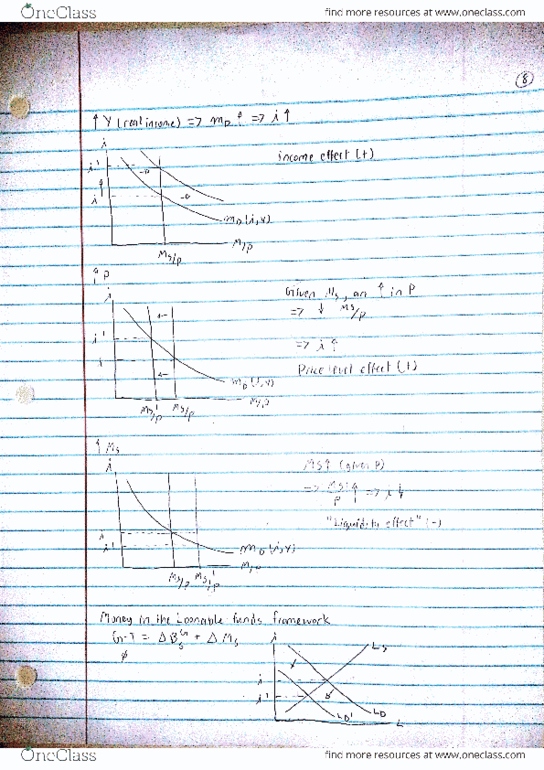 OneClass
find more resources at www.oneclass.com
8
↑ Y (real income) => mD ↑ => i ↑
income effect (+)
i
i'
i
mD (i,Y)
M/P
Ms/P
↑ P
Given Ms, an ↑ in P
=> ↓ Ms/P
=> i ↑
Price level effect (+)
i
i'
i
mD (i,Y)
Ms/P' Ms/P
M/P
↑ Ms
MS↑ (given P)
=> Ms↑/P ↑ => i ↓
"Liquidity effect" (-)
i
i
i'
mD (i,Y)
Ms/P Ms'/P
Money in the Loanable funds framework
G-T = ΔB + ΔMs
i
Ls
i
i'
LD' LD
L
OneClass
find more resources at www.oneclass.com